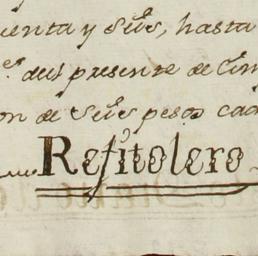 uenta y Seis, hasta
del presente de
on de Seis pesos cad
Refitolero